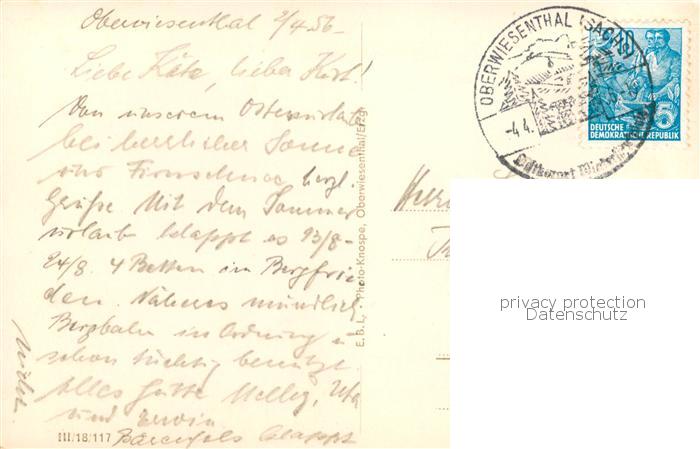 Oberwiesenthal 2/4.56
Liebe Käte, lieber Kurt!
Von unserem Osterurlaub
bei herrlicher Sonne
und Firnschnee herzl.
Grüße. Mit dem Sommer
urlaub klappt es 13/8-
24/8. 4 Betten im Bergfrie
den. Näheres mündlich.
Bergbahn in Ordnung u
schon tüchtig benutzt
Alles Gute Helley, Uta
und Erwin
Bärenfels klappt
nicht.
III/18/117
E.B.L. Photo-Knospe, Oberwiesenthal/Erzg.
OBERWIESENTHAL (SACHS)
-4.4.
Luftkurort
DEUTSCHE
DEMOKRATISCHE REPUBLIK
5
privacy protection
Datenschutz